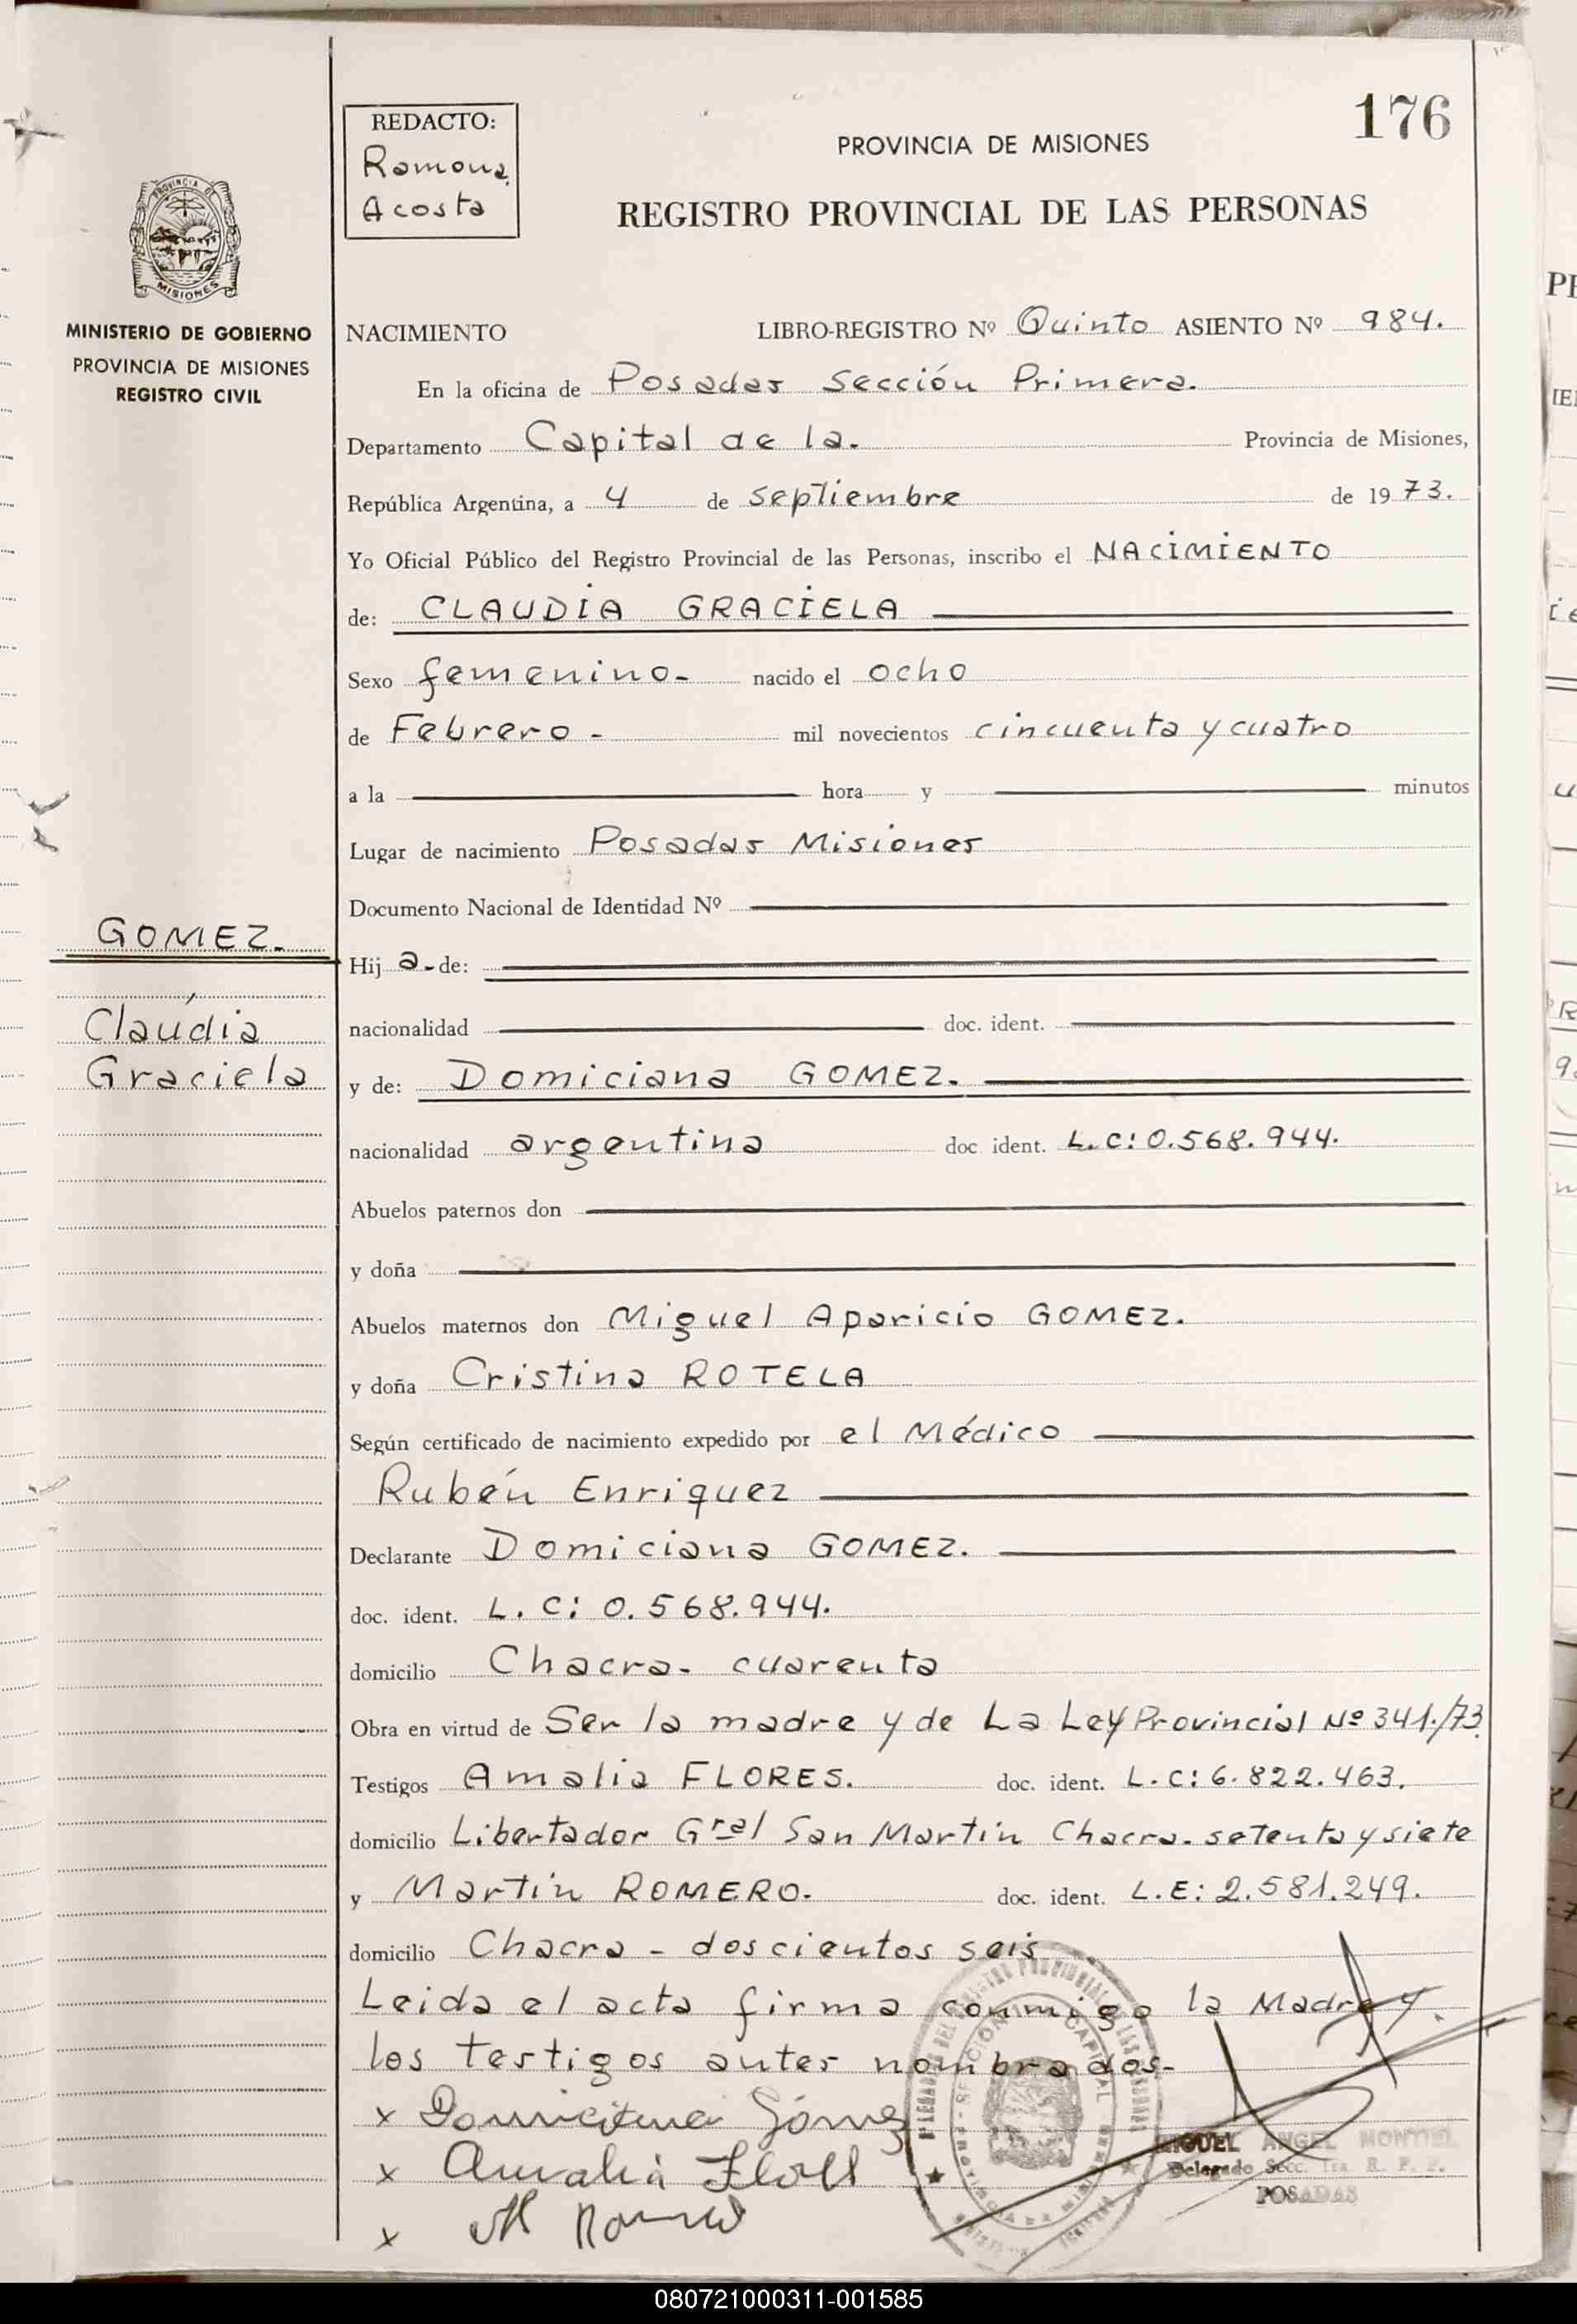 176
REDACTO:
Ramona
Acosta
PROVINCIA DE MISIONES
REGISTRO PROVINCIAL DE LAS PERSONAS
PROVINCIA DE
MISIONES
MINISTERIO DE GOBIERNO
PROVINCIA DE MISIONES
REGISTRO CIVIL
NACIMIENTO LIBRO-REGISTRO Nº Quinto ASIENTO Nº 984.
En la oficina de Posadas Sección Primera.
Departamento Capital de la. Provincia de Misiones,
República Argentina, a 4 de septiembre de 1973.
Yo Oficial Público del Registro Provincial de las Personas, inscribo el NACIMIENTO
de: CLAUDIA GRACIELA
Sexo femenino- nacido el ocho
de Febrero - mil novecientos cincuenta y cuatro
a la hora y minutos
Lugar de nacimiento Posadas Misiones
Documento Nacional de Identidad Nº
GOMEZ.
Claudia
Graciela
Hij a- de:
nacionalidad doc. ident.
y de: Domiciana GOMEZ.
nacionalidad argentina doc ident. L.C: 0.568.944.
Abuelos paternos don
y doña
Abuelos maternos don Miguel Aparicio GOMEZ.
y doña Cristina ROTELA
Según certificado de nacimiento expedido por el Médico
Rubén Enriquez
Declarante Domiciana GOMEZ.
doc. ident. L. C: 0.568.944.
domicilio Chacra- cuarenta
Obra en virtud de Ser la madre y de La Ley Provincial Nº 341./73.
Testigos Amalia FLORES. doc. ident. L.C: 6.822.463.
domicilio Libertador Gral San Martín Chacra- setenta y siete
y Martín ROMERO. doc. ident. L.E: 2.581.249.
domicilio Chacra - doscientos seis
Leida el acta firma conmigo la Madre y
los testigos antes nombrados-
x Domiciana Gómez
x Amalia Flores
x M Romero
MIGUEL ANGEL MONTIEL
Delegado Secc. 1ra R. P. P.
POSADAS
080721000311-001585